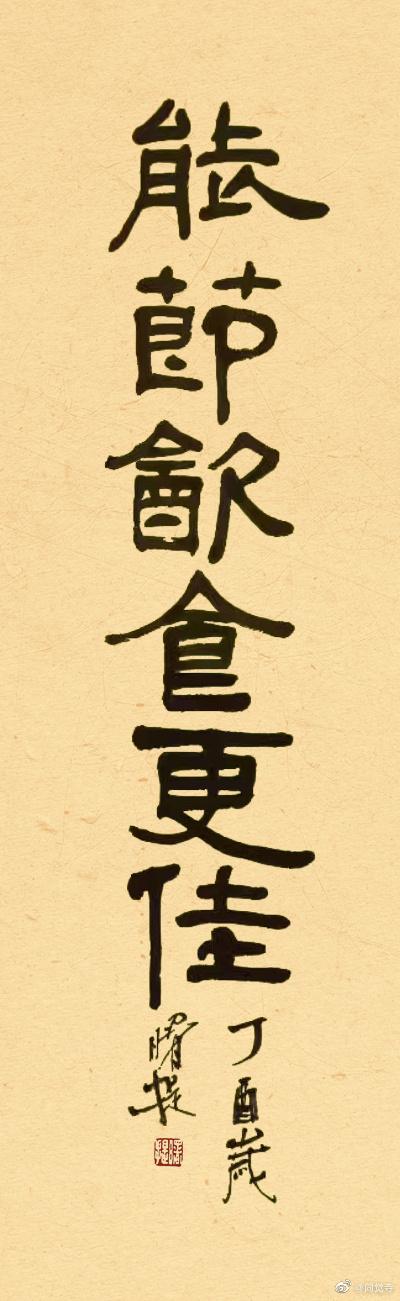 能節飲食更佳
丁酉歲